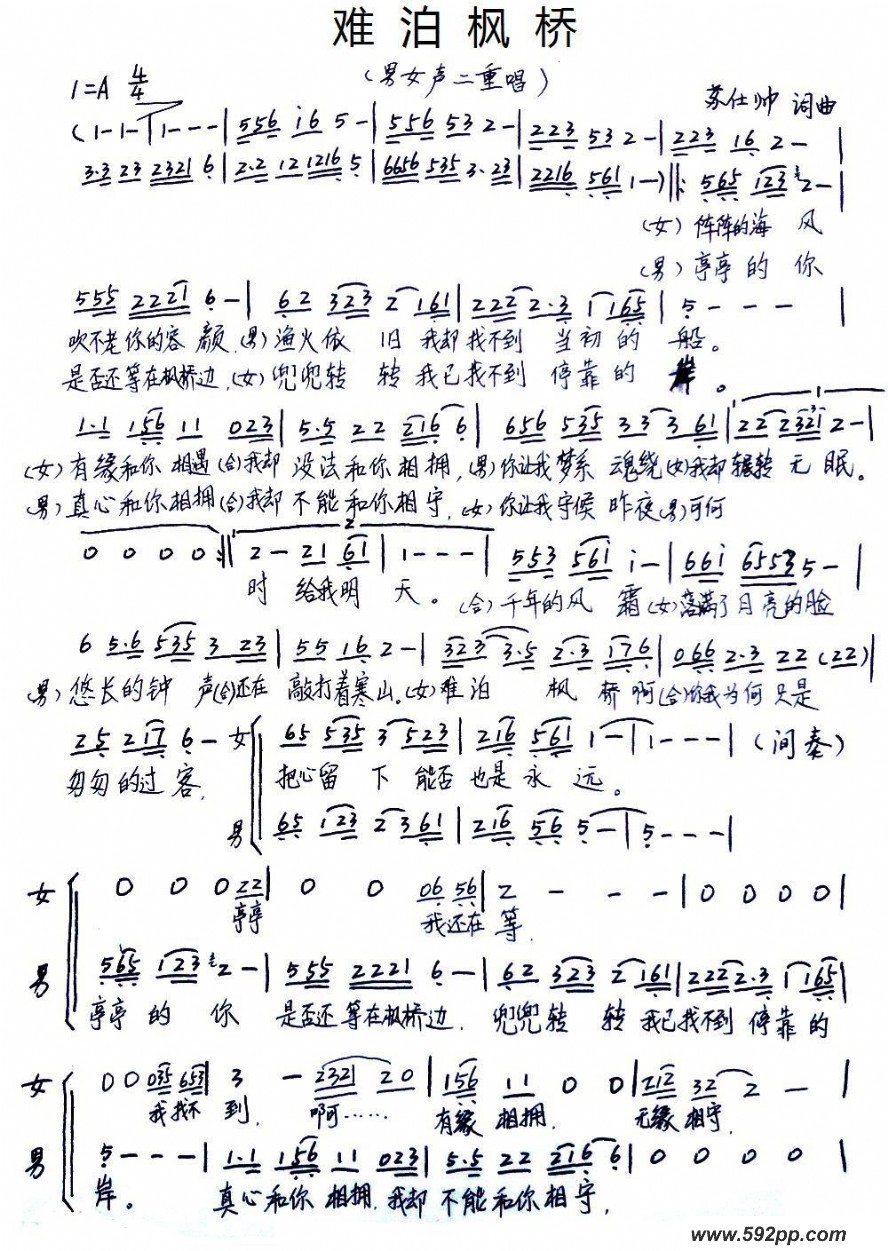 难泊枫桥
(男女声二重唱)
1=A 4/4
苏仕帅 词曲
(1-1-|1---|556 i6 5-|556 53 2-|223 53 2-|223 16 2-|
3·3 23 2321 6|2·2 12 1216 5|6656 535 3·23|2216 561 1-)‖: 565 123 2-|
(女)阵阵的海 风
(男)亭亭的 你
555 2221 6-|62 323 2 161|222 2·3 1 165|5---|
吹不老你的容 颜.(男)渔火依 旧 我却找不到 当初的 船。
是否还等在枫桥边,(女)兜兜转 转 我已找不到 停靠的 岸。
1·1 156 11 023|5·5 22 216 6|656 535 33 3 61|22 2321 2-|
(女)有缘和你 相遇(合)我却 没法和你相拥,(男)你让我梦系 魂绕(女)我却辗转 无眠。
(男)真心和你相拥(合)我却 不能和你相守,(女)你让我守候 昨夜(男)可何
0 0 0 0 :‖ 2-21 61|1---|553 561 i-|66i 6553 5-|
时 给我明 天。(合)千年的风 霜(女)落满了月亮的脸
6 5·6 535 3 23|55 16 2-|323 3·5 2·3 176|066 2·3 22 (22)|
(男)悠长的钟 声(合)还在 敲打着寒山。(女)难泊 枫 桥啊(合)你我为何只是
25 217 6- 女 65 535 3 523|216 561 1-|1---|(间奏)
匆匆的过客, 把心留 下 能否 也是永 远。
男 65 123 2 361|216 56 5-|5---|
女 0 0 0 22|0 0 06 56|2 - - -|0 0 0 0|
亭亭 我还在 等,
男 565 123 2-|555 2221 6-|62 323 2 161|222 2·3 1 165|
亭亭 的 你 是否还等在枫桥边. 兜兜转 转 我已找不到 停靠的
女 00 035 653|3 - 2321 20|156 11 0 0|212 32 2 -|
我找不 到, 啊…… 有缘 相拥. 无缘相守,
男 5---|1·1 156 11 023|5·5 22 216 6|0 0 0 0|
岸。 真心和你 相拥.我却 不能和你相守,
www.592pp.com